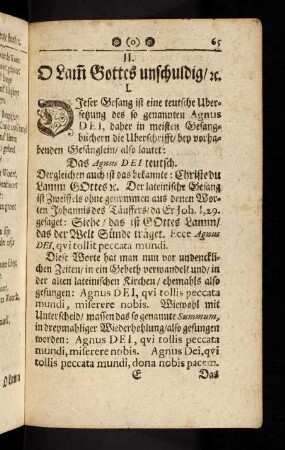 (o) 65
II.
O Lam̃ Gottes unschuldig/ ꝛc.
I.
DIeser Gesang ist eine teutsche Uber-
setzung des so genannten Agnus
DEI, daher in meisten Gesang-
büchern die Uberschrifft/ bey vorha-
benden Gesänglein/ also lautet:
Das Agnus DEI teutsch.
Dergleichen auch ist das bekannte: Christe du
Lamm GOttes ꝛc. Der lateinische Gesang
ist Zweiffels ohne genommen aus denen Wor-
ten Johannis des Täuffers/ da Er Joh. I, 29.
gesaget: Siehe/ das ist GOttes Lamm/
das der Welt Sünde träget. Ecce Agnus
DEI, qvi tollit peccata mundi.
Diese Worte hat man nun vor undenckli-
chen Zeiten/ in ein Gebeth verwandelt und/ in
der alten lateinischen Kirchen/ ehemahls also
gesungen: Agnus DEI, qvi tollis peccata
mundi, miserere nobis. Wiewohl mit
Unterscheid/ massen das so genannte Summum,
in dreymahliger Wiederhohlung/ also gesungen
worden: Agnus DEI, qvi tollis peccata
mundi, miserere nobis. Agnus Dei, qvi
tollis peccata mundi, dona nobis pacem.
E Das